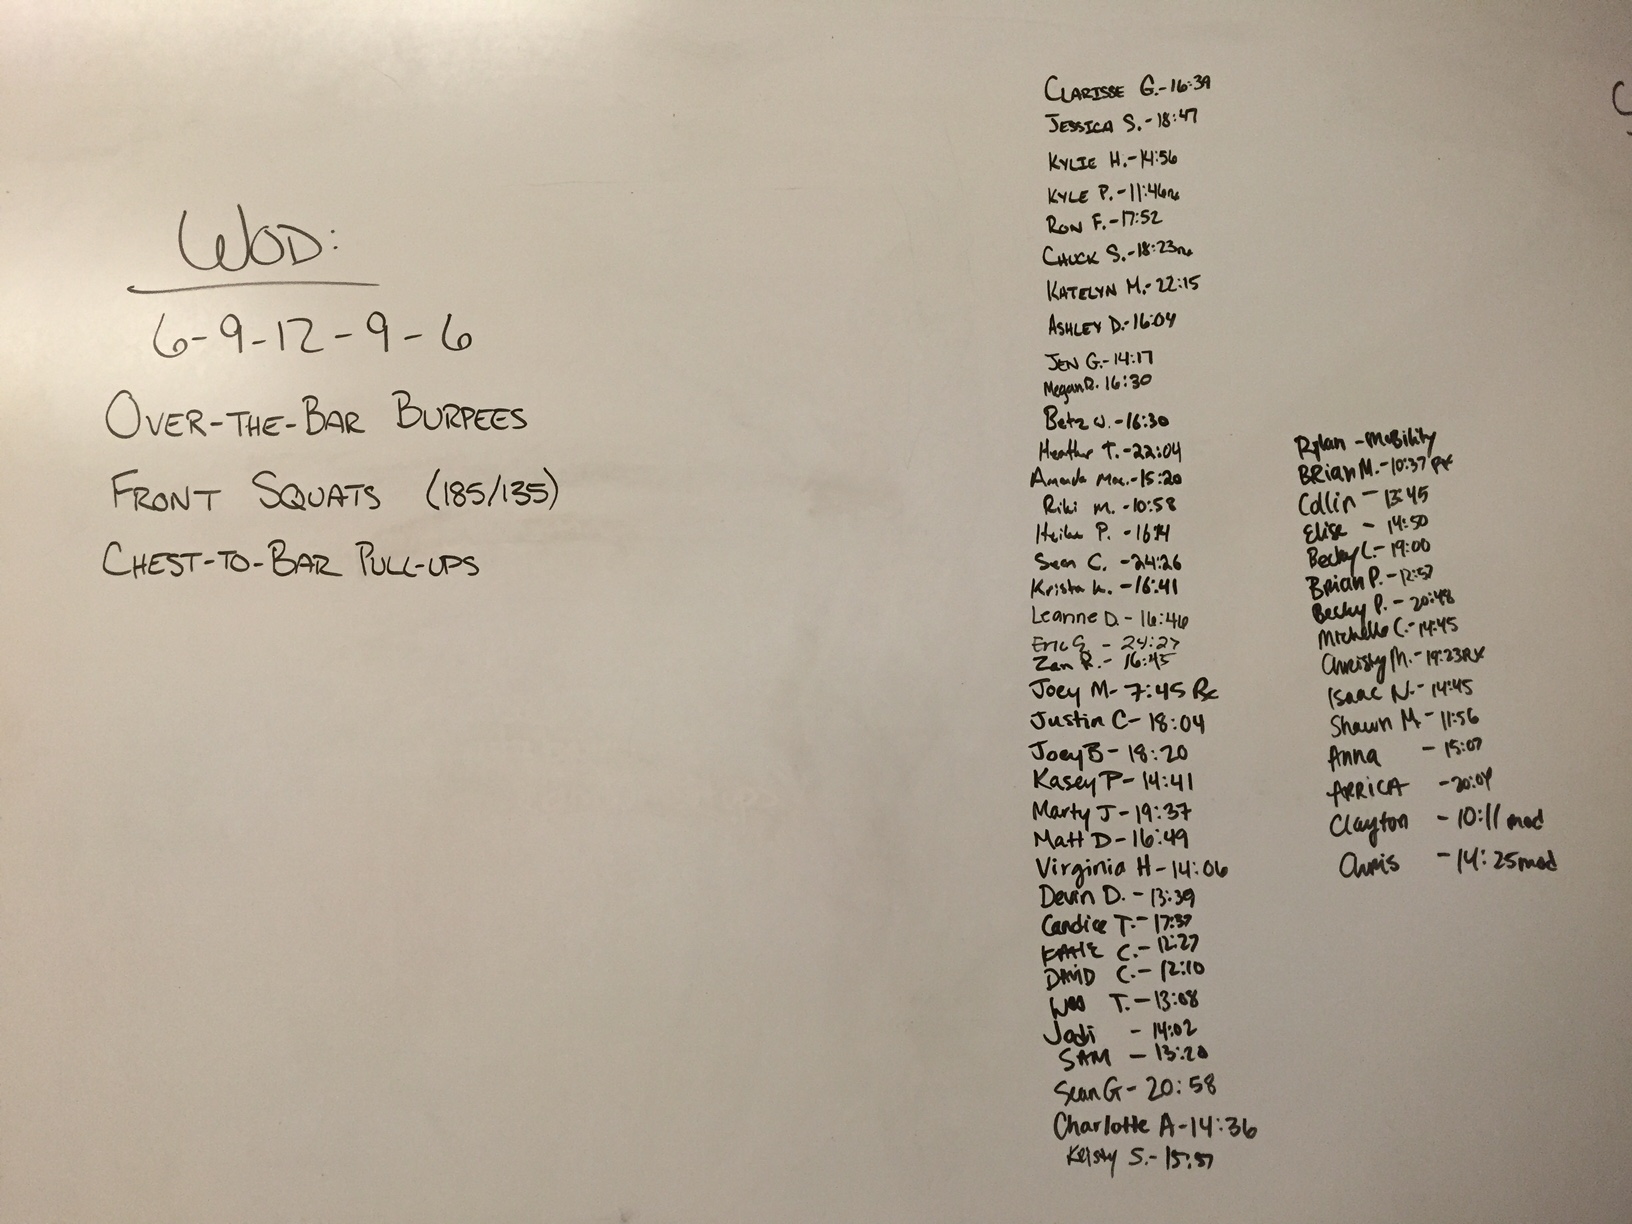 WOD:
6-9-12-9-6
OVER-THE-BAR BURPEES
FRONT SQUATS (185/135)
CHEST-TO-BAR PULL-UPS
CLARISSE G.-16:39
JESSICA S.-18:47
KYLIE H.-14:56
KYLE P.-11:46rx
RON F.-17:52
CHUCK S.-18:23rx
KATELYN M.-22:15
ASHLEY D.-16:04
JEN G.-14:17
Megan R. 16:30
Betz J.-16:30
Heather T.-22:04
Amanda Mac.-15:20
Riki m.-10:58
Heike P. -
Sean C. -24:26
Krista K. -16:41
Leanne D. - 16:46
Eric G - 24:27
Zan R.- 16:45
Joey M- 7:45 Rx
Justin C- 18:04
Joey B- 18:20
Kasey P- 14:41
Marty J- 19:37
Matt D- 16:49
Virginia H- 14:06
Devin D. - 13:39
Candice T.- 17:37
KATIE C.- 12:27
DAVID C.- 12:10
T.- 13:08
Jodi - 14:02
SAM - 13:20
Sean G- 20:58
Charlotte A-14:36
Kelsey S.- 15:57
Rylan -Mobility
BRian M.-10:37 Rx
Collin - 13:45
Elise - 14:50
Becky L.- 19:00
Brian P.- 12:57
Becky P. - 20:48
Michelle C.- 14:45
Christy M.- 19:23Rx
Isaac N.- 14:45
Shawn M - 11:56
Anna - 15:07
ARRICA -20:04
Clayton - 10:11 mod
Chris - 14:25mod